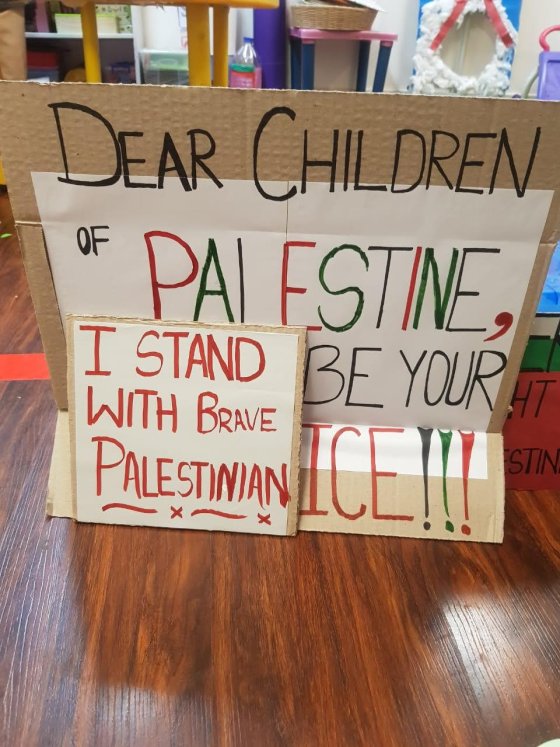 DEAR CHILDREN
OF PALESTINE,
BE YOUR
ICE!!!
I STAND
WITH BRAVE
PALESTINIAN